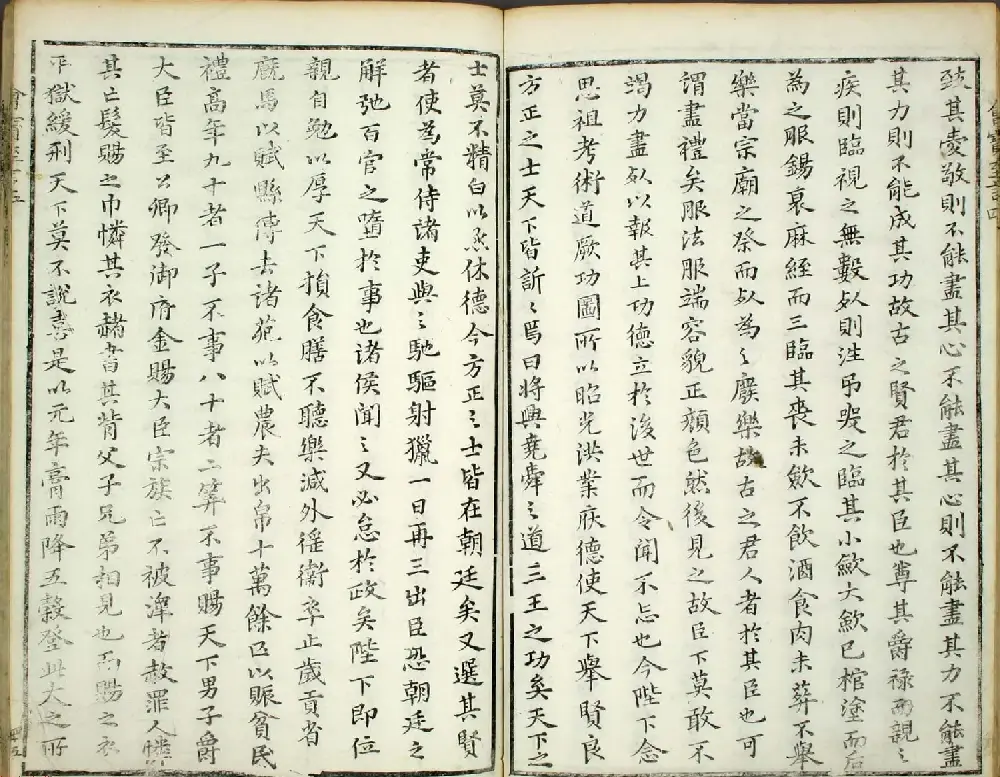 致其愛敬則不能盡其心不能盡其心則不能盡其力不能盡
其力則不能成其功故古之賢君於其臣也尊其爵祿而親之
疾則臨視之無數死則往吊哭之臨其小歛大歛已棺塗而后
為之服錫衰麻絰而三臨其喪未歛不飲酒食肉未葬不舉
樂當宗廟之祭而死為之廢樂故古之君人者於其臣也可
謂盡禮矣服法服端容貌正顔色然後見之故臣下莫敢不
竭力盡死以報其上功德立於後世而令聞不忘也今陛下念
思祖考術追厥功圖所以昭光洪業庥德使天下舉賢良
方正之士天下皆訢〻焉曰將興堯舜之道三王之功矣天下之
士莫不精白以烝休德今方正之士皆在朝廷矣又選其賢
者使為常侍諸吏與之馳驅射獵一日再三出臣恐朝廷之
解弛百官之墮於事也諸侯聞之又必怠於政矣陛下即位
親自勉以厚天下損食膳不聽樂減外徭衛卒止歲貢省
廐馬以賦縣傳去諸苑以賦農夫出帛十萬餘匹以賑貧民
禮高年九十者一子不事八十者二筭不事賜天下男子爵
大臣皆至公卿發御府金賜大臣宗族亡不被澤者赦罪人憐
其亡髮賜之巾憐其衣赭書其背父子兄弟相見也而賜之衣
平獄緩刑天下莫不說喜是以元年膏雨降五穀登此大之所